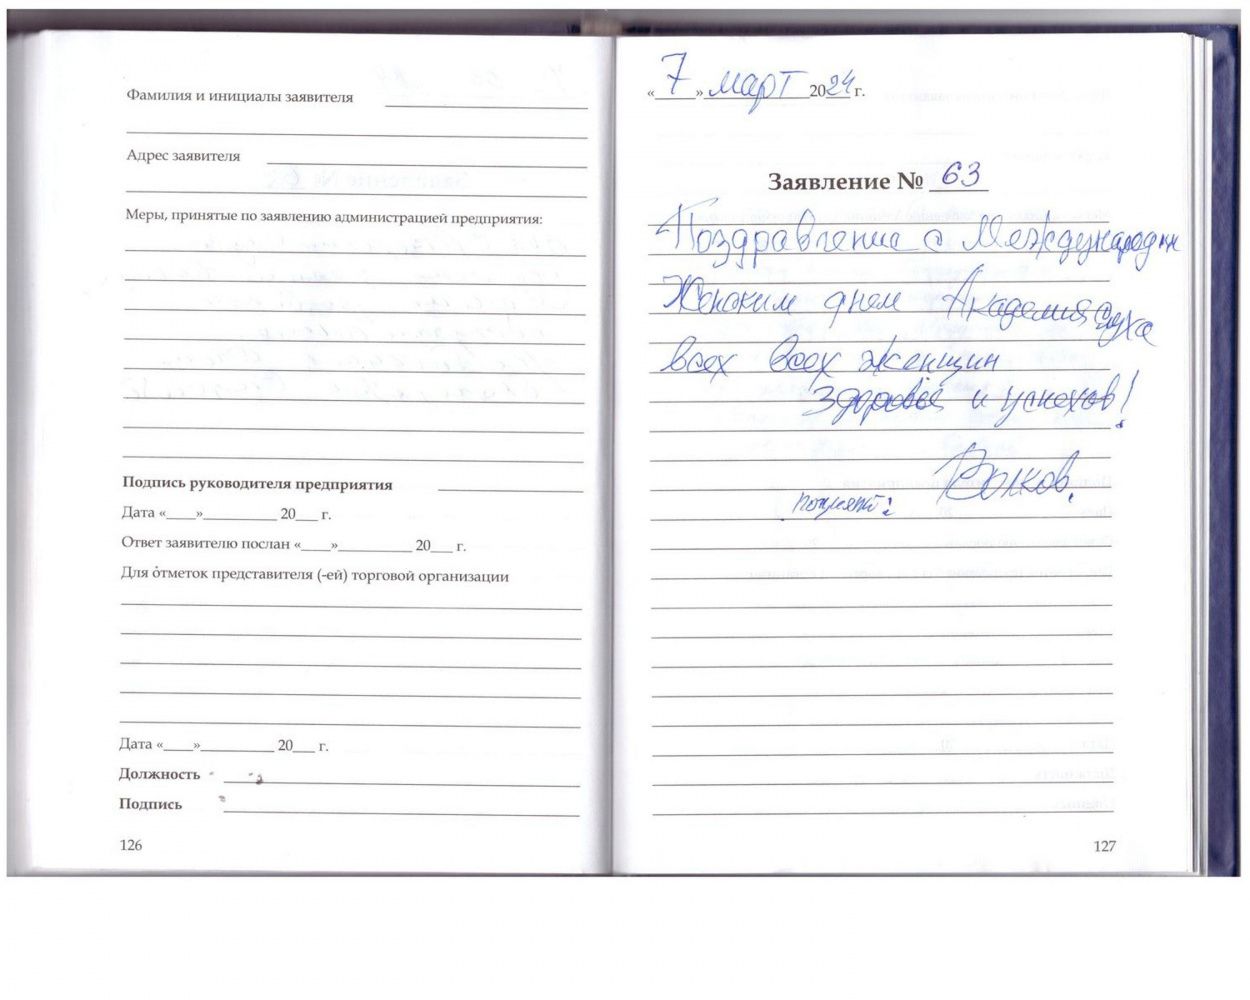 Фамилия и инициалы заявителя
Адрес заявителя
Меры, принятые по заявлению администрацией предприятия:
Подпись руководителя предприятия
Дата «____»__________ 20___ г.
Ответ заявителю послан «____»__________ 20___ г.
Для отметок представителя (-ей) торговой организации
Дата «____»__________ 20___ г.
Должность
Подпись
126
«7» март 2024 г.
Заявление № 63
Поздравление с Международн
Женским днем Академия слуха
всех всех женщин
Здоровья и успехов!
Волков.
127